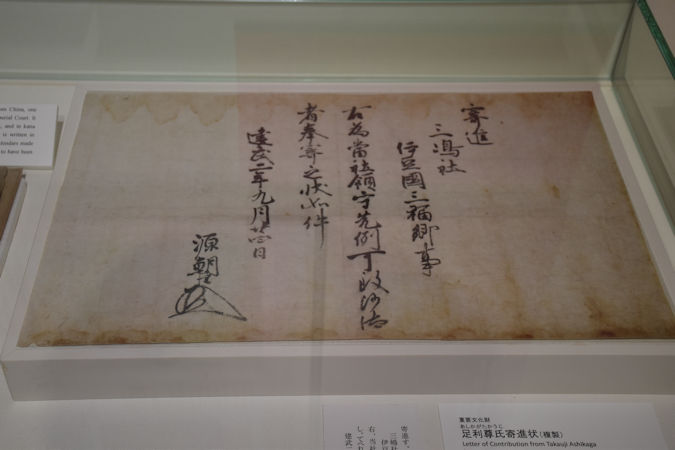 寄進
三嶋社
伊豆國三福郷事
右為當社領守先例可致沙汰
者奉寄之状如件
建武二年九月廿四日
源朝臣
om China, one
perial Court. It
, and to kana
is written in
to have been
寄進す、
三嶋社
伊豆
右、当社
建武二
重要文化財
あしかがたかうじ
足利尊氏寄進状(複製)
Letter of Contribution from Takauji Ashikaga